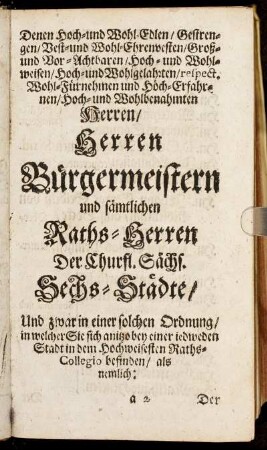 Denen Hoch-und Wohl-Edlen/ Gestren-
gen/ Vest-und Wohl-Ehrenvesten/ Groß-
und Vor-Achtbaren/ Hoch-und Wohl-
weisen/ Hoch-und Wohlgelahrten/ respect.
Wohl-Fürnehmen und Hoch-Erfahr-
nen/ Hoch-und Wohlbenahmten
Herren/
Herren
Bürgermeistern
und sämtlichen
Raths-Herren
Der Churfl. Sächs.
Sechs-Städte/
Und zwar in einer solchen Ordnung/
in welcher Sie sich anitzo bey einer iedweden
Stadt in dem Hochweisesten Raths-
Collegio befinden/ als
nemlich:
a 2 Der